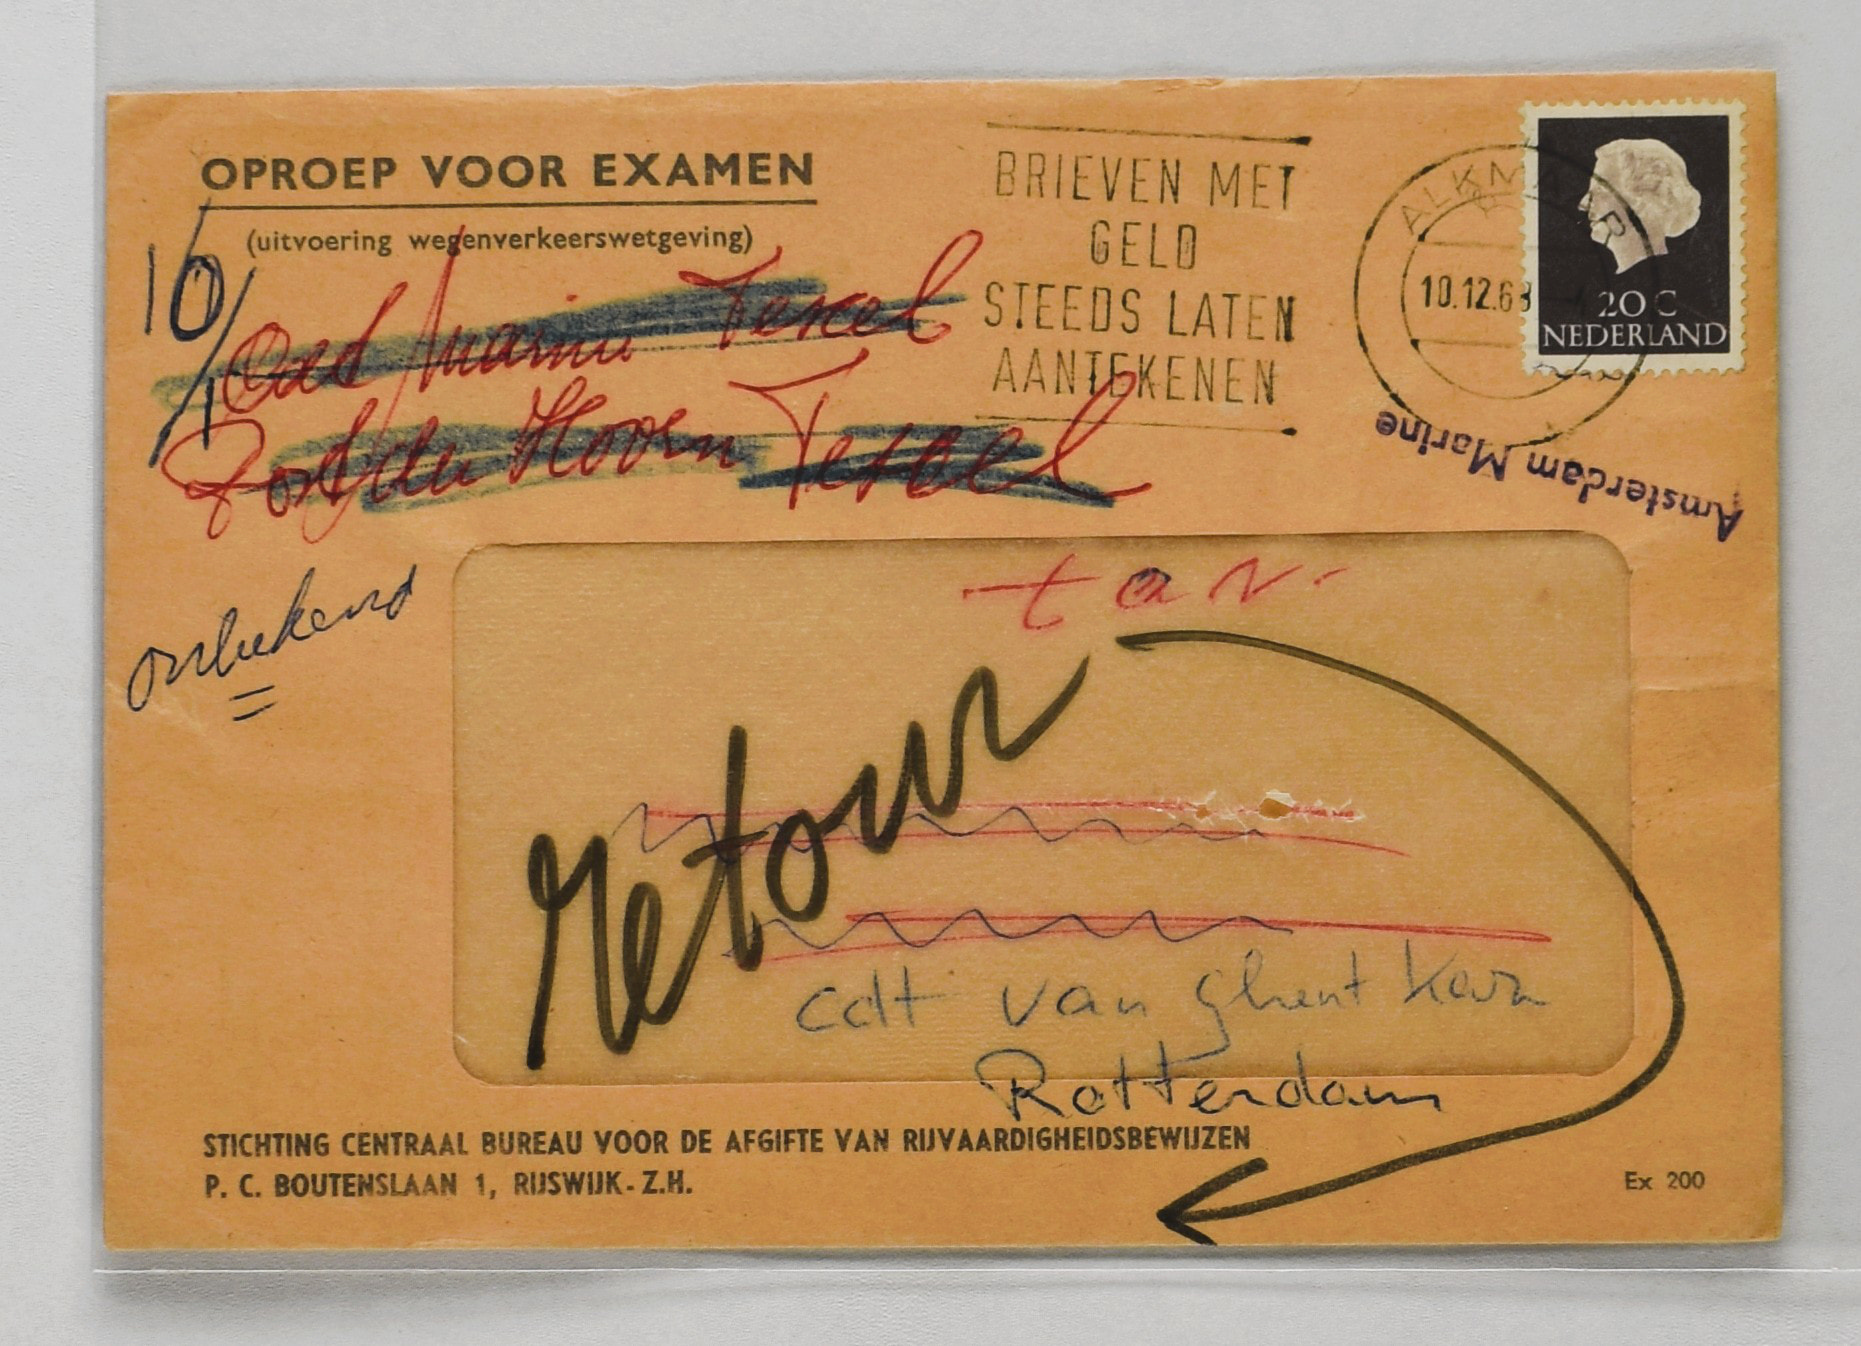 OPROEP VOOR EXAMEN
(uitvoering wegenverkeerswetgeving)
16/1
Marine Texel
den Hoorn Texel
BRIEVEN MET
GELD
STEEDS LATEN
AANTEKENEN
ALKMAAR
10.12.68
20 C
NEDERLAND
Amsterdam Marine
onbekend
tav.
retour
cdt van Ghent Kazn
Rotterdam
STICHTING CENTRAAL BUREAU VOOR DE AFGIFTE VAN RIJVAARDIGHEIDSBEWIJZEN
P. C. BOUTENSLAAN 1, RIJSWIJK - Z.H.
Ex 200